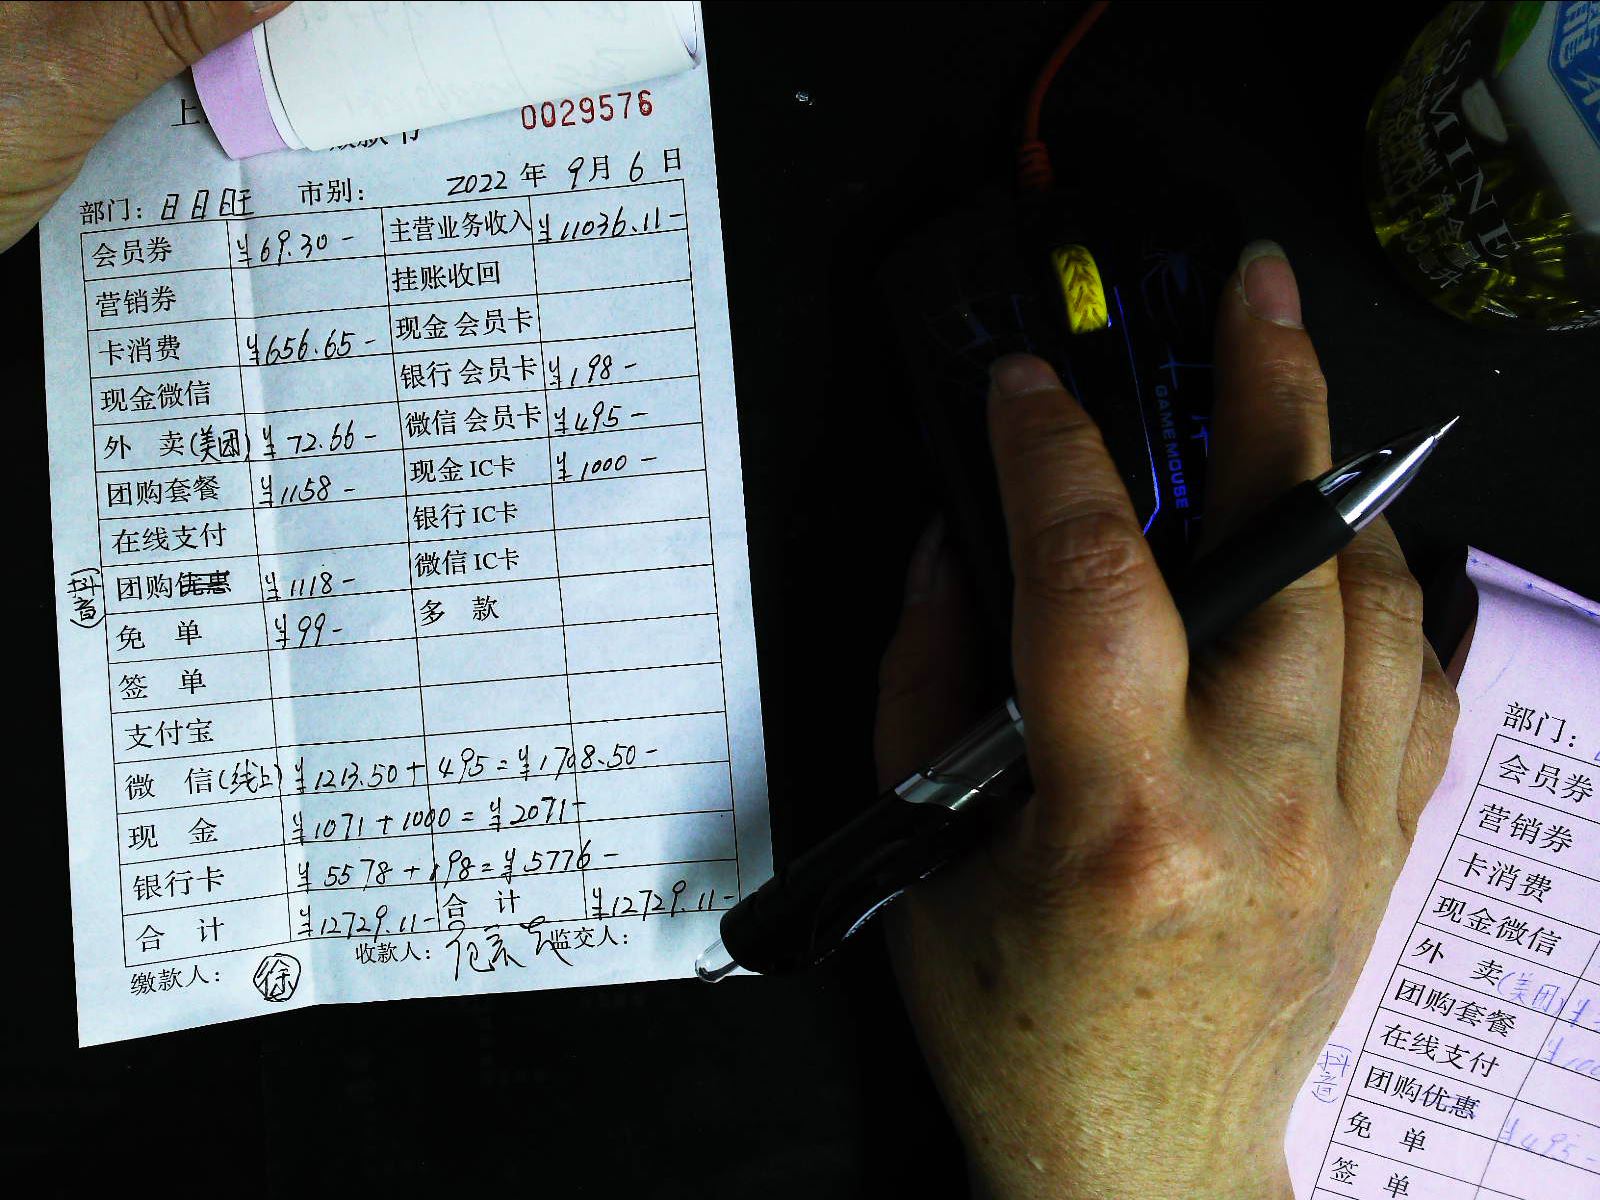 0029576
部门: 日日旺 市别: 2022年9月6日
会员券 ¥69.30- 主营业务收入 ¥11036.11-
营销券 挂账收回
卡消费 ¥656.65- 现金 会员卡
现金微信 银行 会员卡 ¥198-
外 卖(美团) ¥72.66- 微信 会员卡 ¥495-
团购套餐 ¥1158- 现金 IC卡 ¥1000-
在线支付 银行 IC卡
(抖音) 团购优惠 ¥1118- 微信 IC卡
免 单 ¥99- 多 款
签 单
支付宝
微 信(线上) ¥1213.50+495=¥1708.50-
现 金 ¥1071+1000=¥2071-
银行卡 ¥5578+198=¥5776-
合 计 ¥12729.11- 合 计 ¥12729.11-
缴款人: 徐 收款人: 监交人:
GAME MOUSE
部门:
会员券
营销券
卡消费
现金微信
外 卖(美团)
团购套餐
在线支付
(抖音) 团购优惠
免 单 ¥495-
签 单